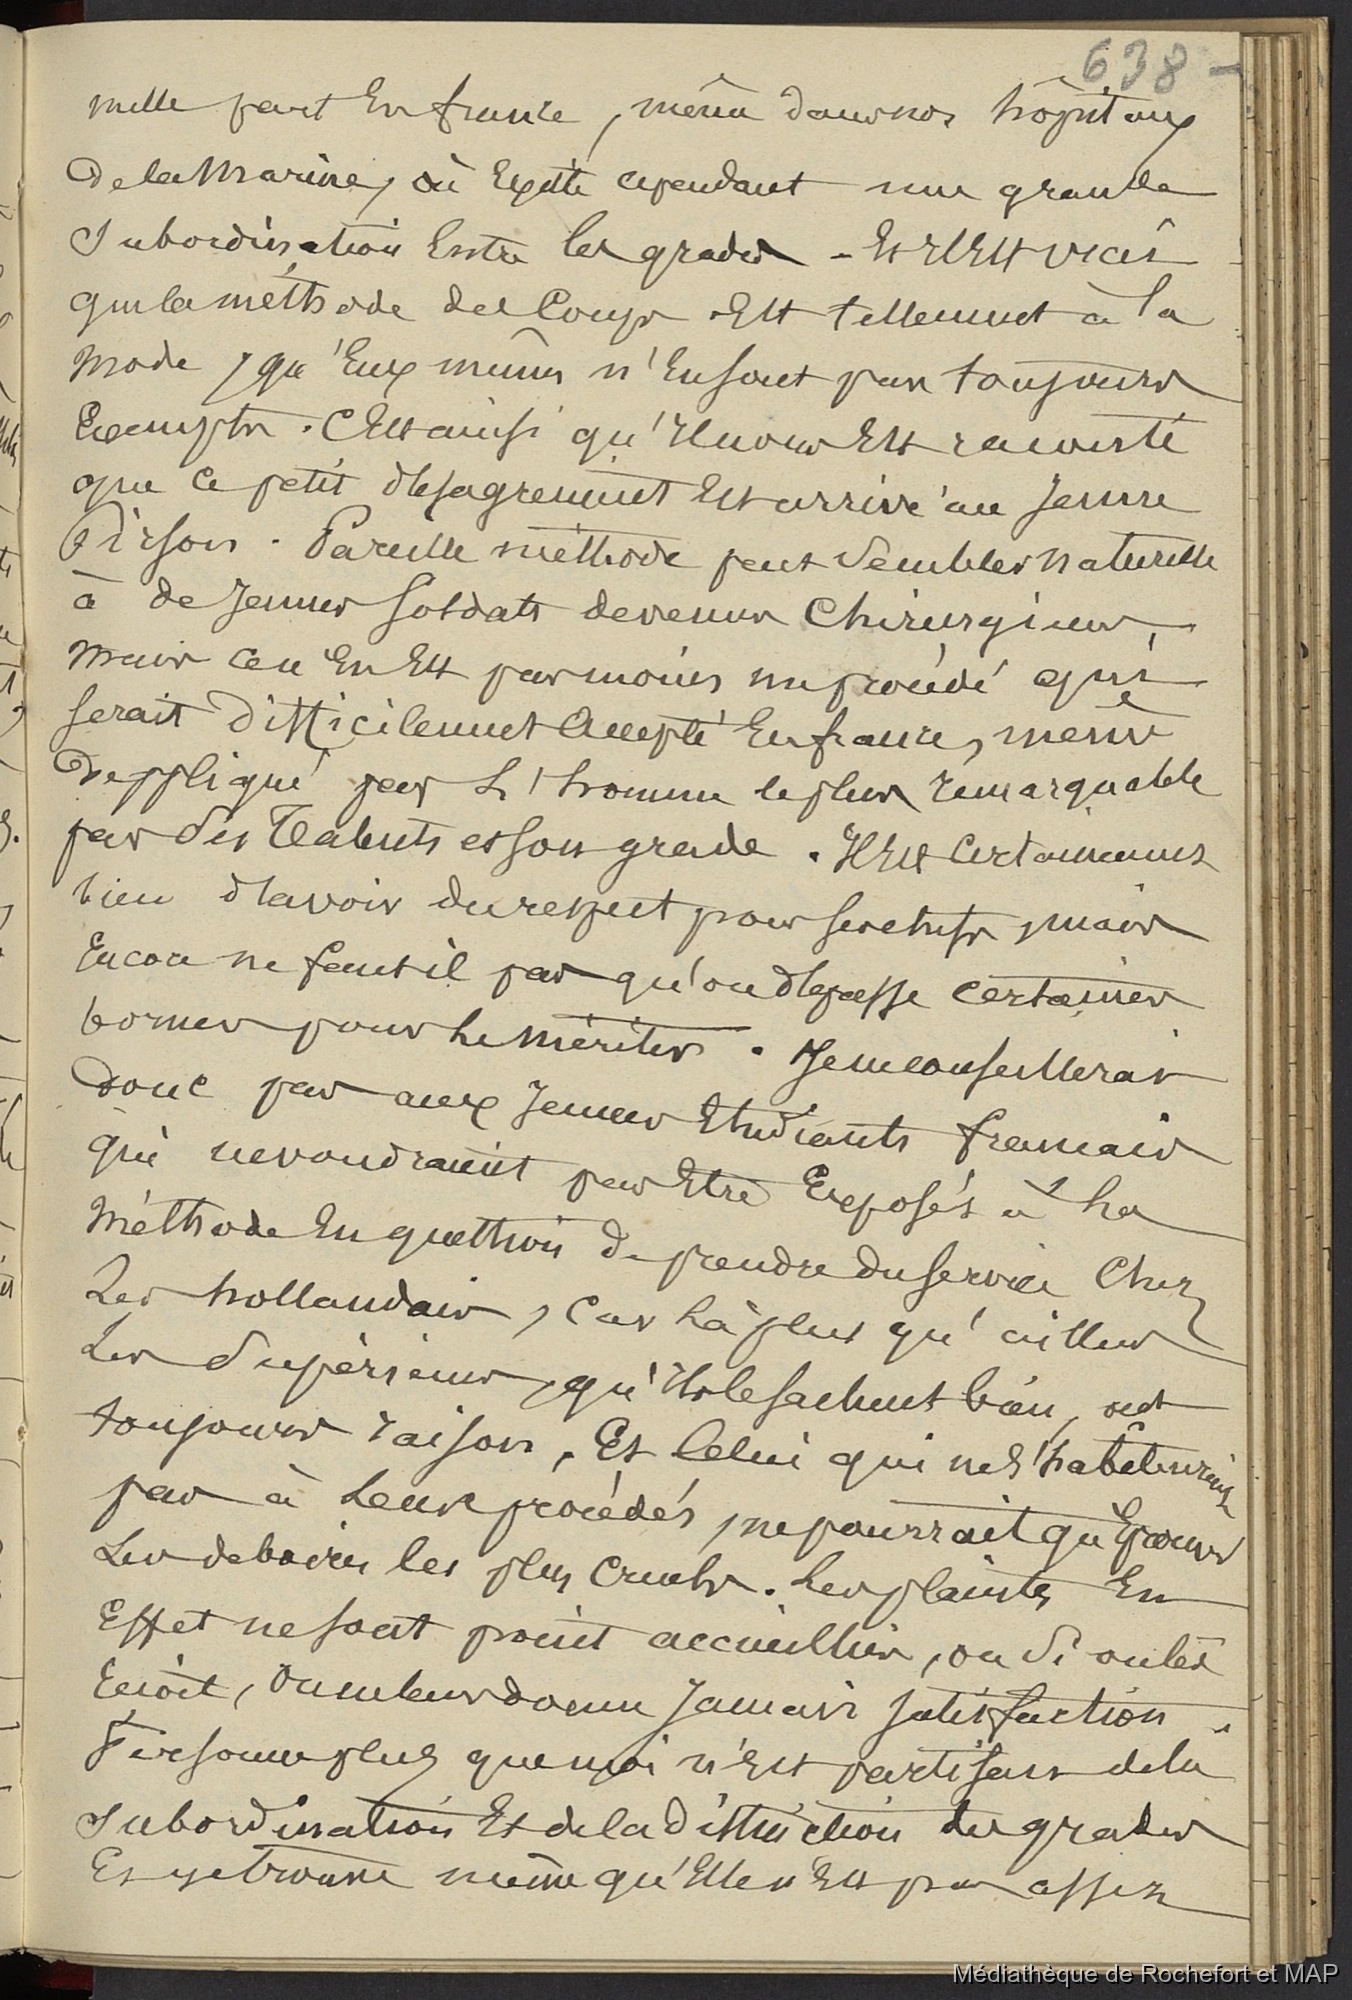 638 -
nulle part En france, même dans nos hôpitaux
De la Marine, où Existe cependant une grande
Subordination Entre les grades - Et Il Est vrai
que la méthode des Coups Est tellement à la
Mode, qu'Eux mêmes n'En sont pas toujours
Exempts. C'Est ainsi qu'Il nous Est raconté
que ce petit désagrément Est arrivé au Jeune
Pirson. Pareille méthode peut Sembler Naturelle
à de Jeunes Soldats devenus Chirurgiens,
Mais ce n'En Est pas moins un procédé qui
Serait Difficilement Accepté En france, même
appliqué par L'homme le plus remarquable
par Ses Talents et Son grade. Il Est Certainement
bien d'avoir du respect pour Ses chefs, mais
Encore ne faut il pas qu'on dépasse certaines
bornes pour Le Mériter. Je ne conseillerais
Donc pas aux Jeunes Etudiants français
qui ne voudraient pas Etre Exposés à La
Méthode En question De prendre du Service Chez
Les hollandais, Car Là plus qu'ailleurs
Les Supérieurs, qu'Ils le sachent bien, ont
toujours raison, Et Celui qui ne S'habituerait
pas à Leurs procédés, ne pourrait qu'Eprouver
Les deboires les plus Cruels. Les plaintes En
Effet ne sont point accueillies, ou Si on les
Reçoit, On ne leur donne Jamais Satisfaction.
Personne plus que moi n'Est partisan de la
Subordination Et de la Distinction des grades
Et je trouve même qu'Elle n'Est pas assez
Médiathèque de Rochefort et MAP